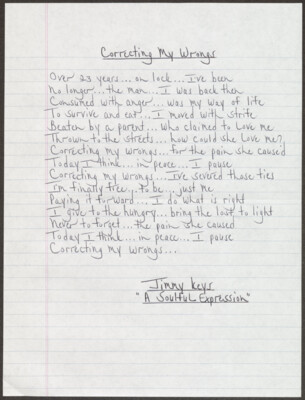 Correcting My Wrongs
Over 23 years... on lock... I've been
no longer... the man... I was back then
Consumed with anger... was my way of life
To survive and eat... I moved with strife
Beaten by a parent... who claimed to love me
Thrown to the streets... how could she love me?
Correcting my wrongs... for the pain she caused
Today I think... in peace... I pause
Correcting my wrongs... I've severed those ties
I'm finally free... to be... just me
Paying it forward... I do what is right
I give to the hungry... bring the lost to light
Never to forget... the pain she caused
Today I think... in peace... I pause
Correcting my wrongs...
Jimmy Keys
"A Soulful Expression"